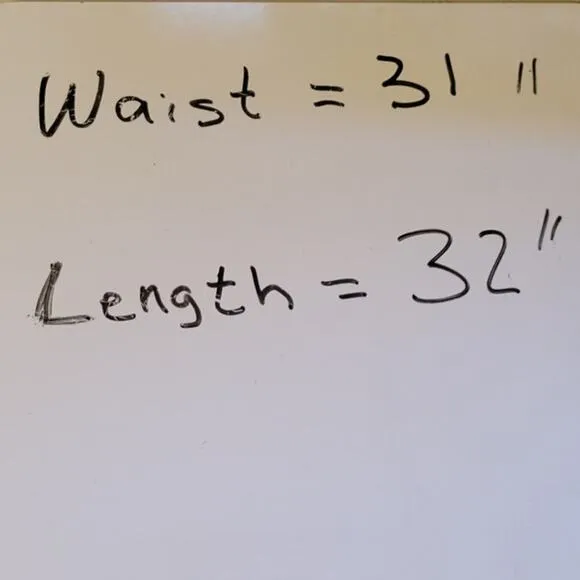 Waist = 31 "
Length = 32"